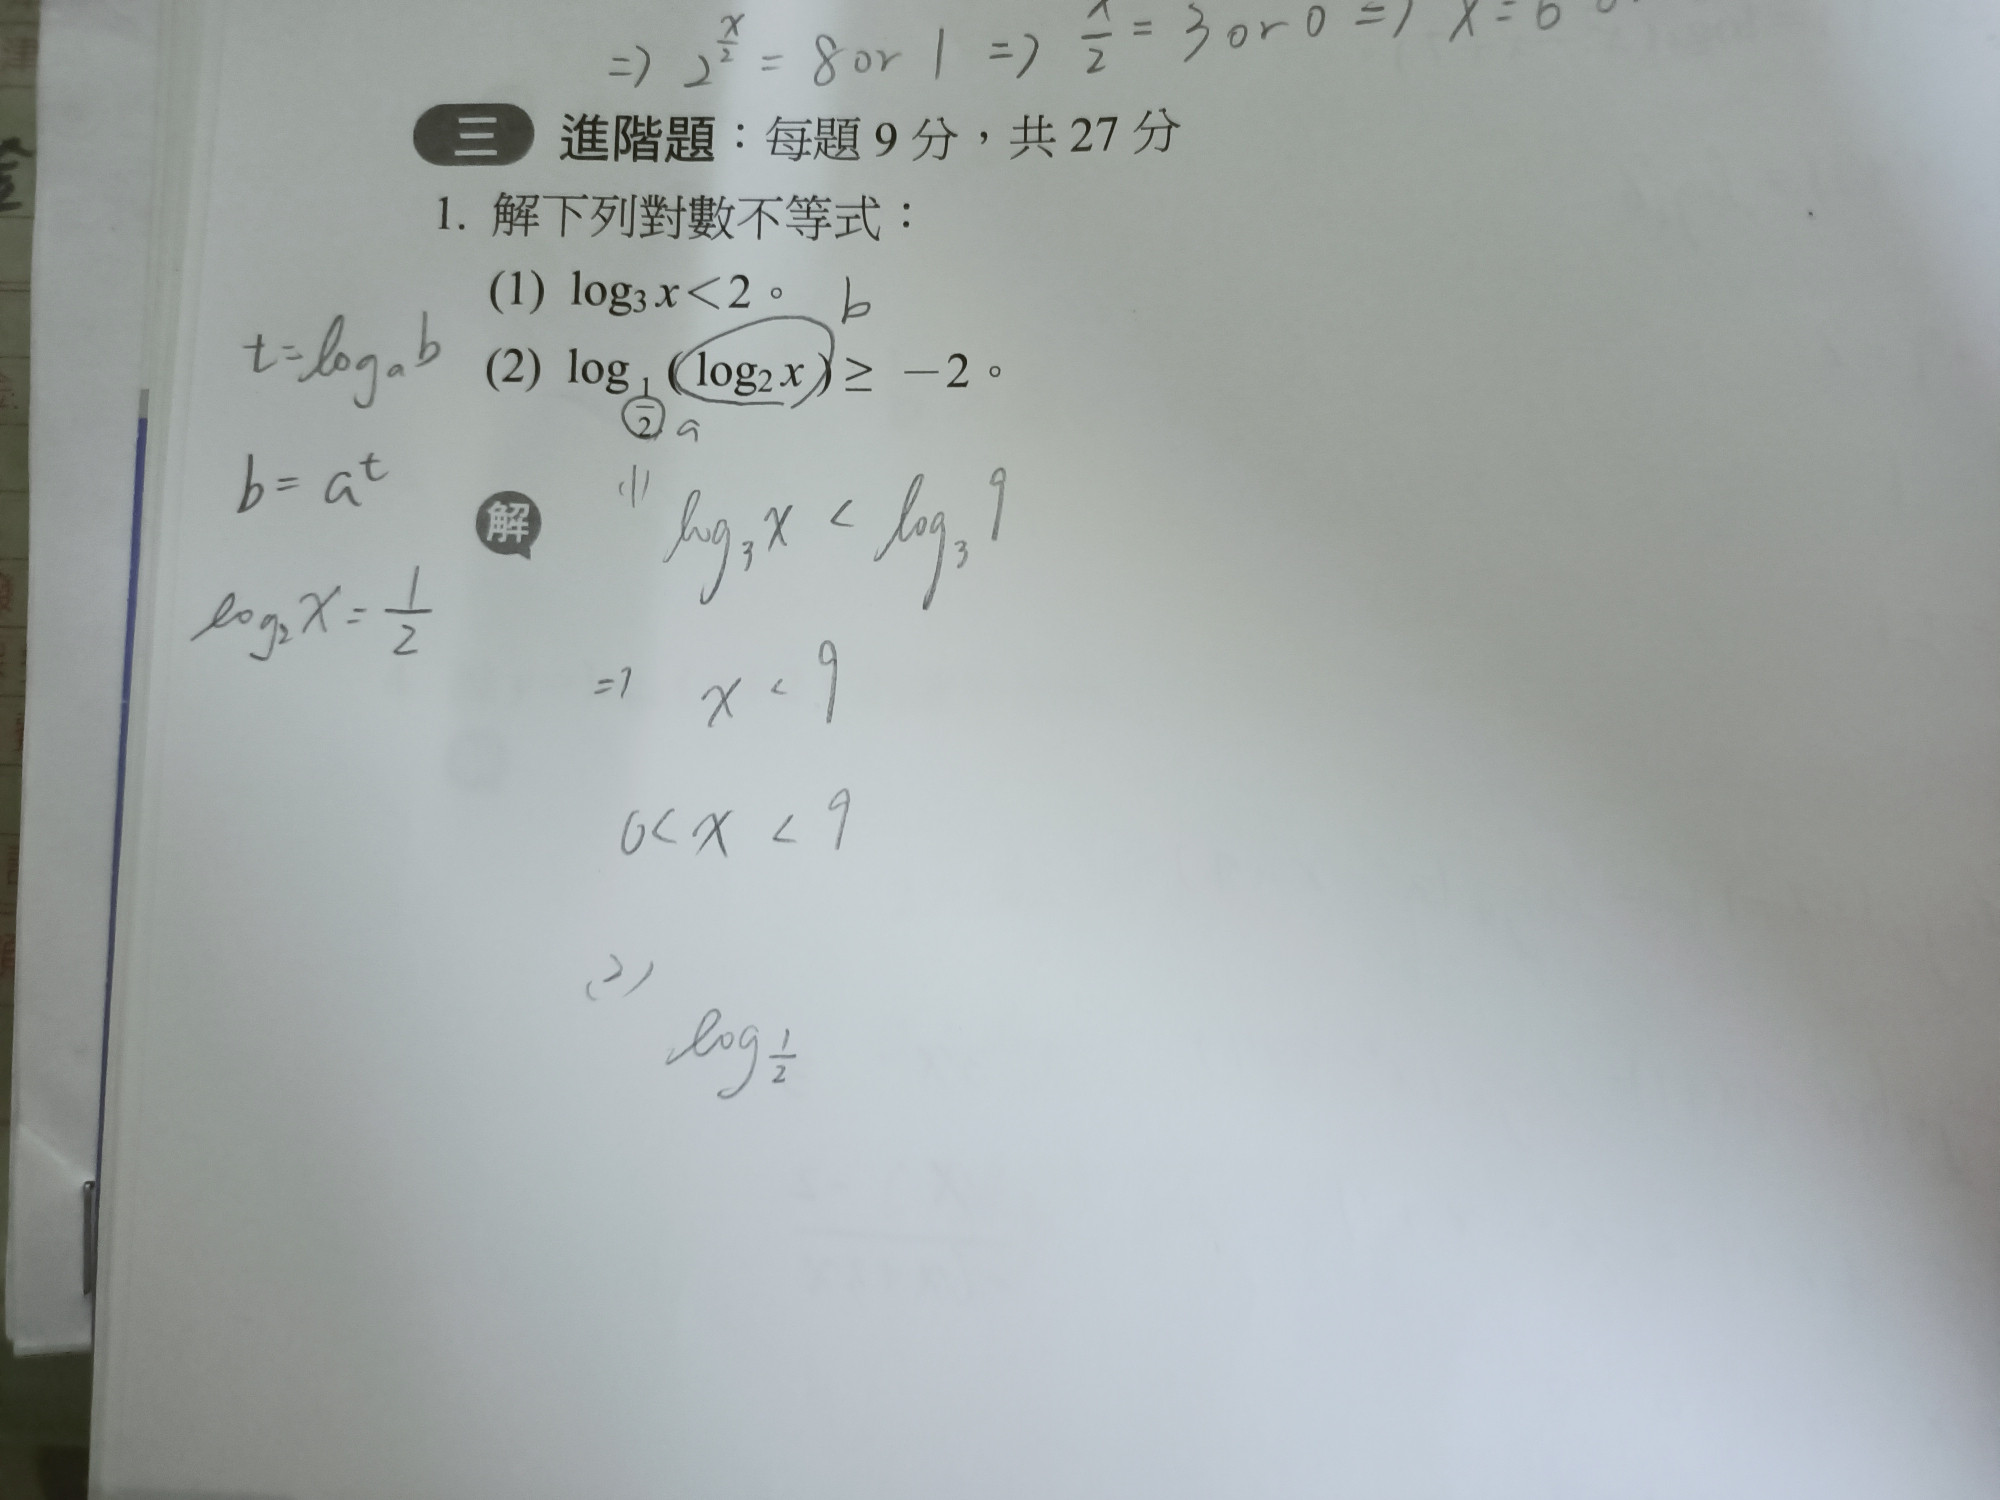 => 2^{x/2} = 8 or 1 => x/2 = 3 or 0 => x = 6
三 進階題：每題 9 分，共 27 分
1. 解下列對數不等式：
(1) log₃ x＜2。
b
t = logₐ b
(2) log_{1/2} (log₂ x) ≥ －2。
a
b = aᵗ
解
(1) log₃ x < log₃ 9
log₂ x = 1/2
=> x < 9
0 < x < 9
(2)
log_{1/2}